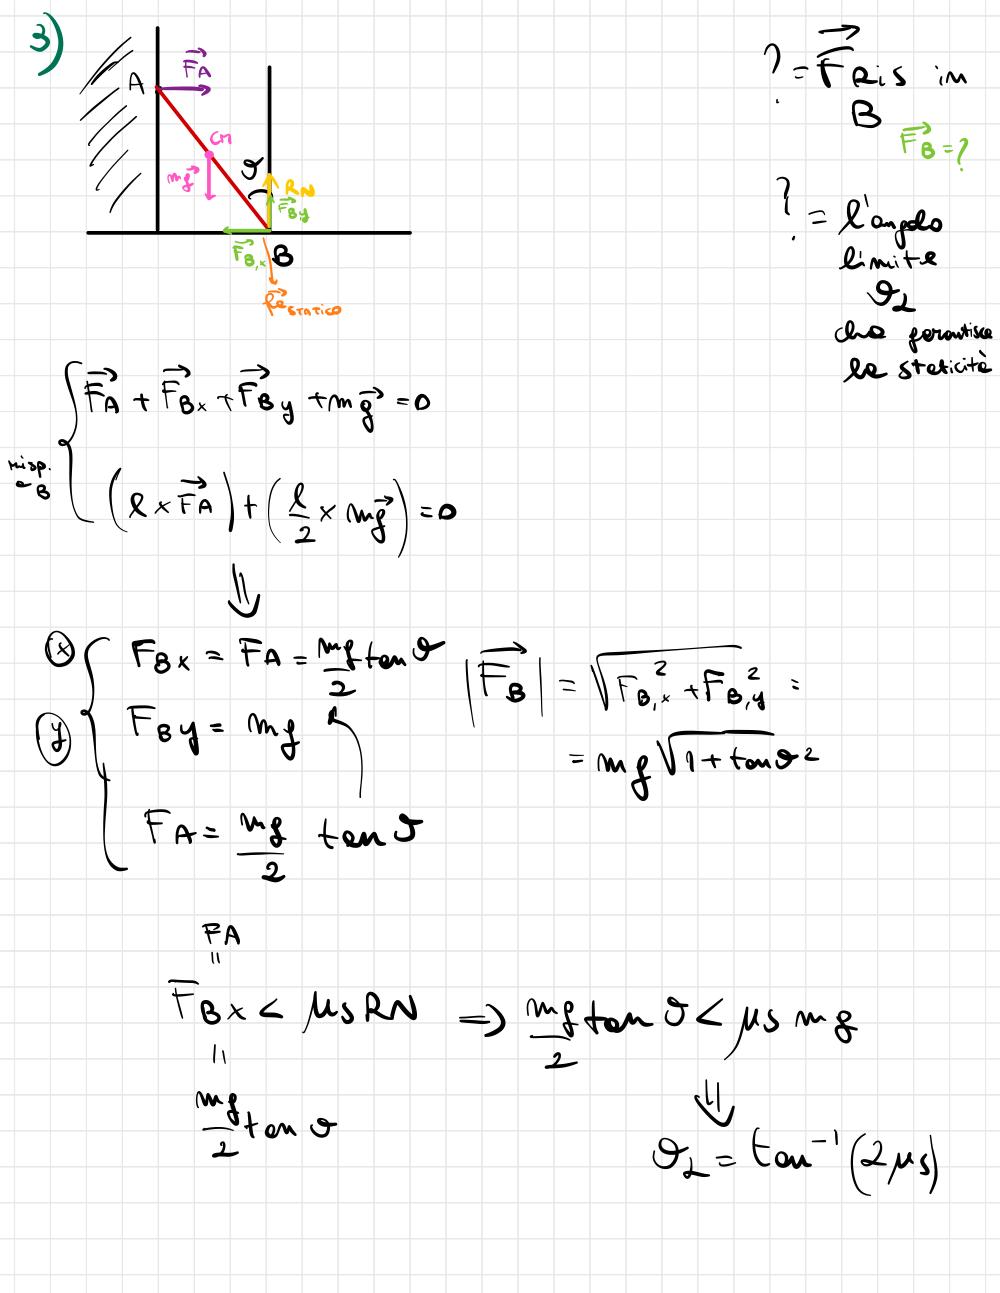 3)
A
F⃗A
CM
mg⃗
ϑ
RN
F⃗By
F⃗B,x
B
F⃗a STATICO
? = F⃗RIS in
B
F⃗B = ?
? = l'angolo
limite
ϑL
che garantisce
la staticità
F⃗A + F⃗Bx + F⃗By + mg⃗ = 0
risp.
a B
(l × F⃗A) + (l/2 × mg⃗) = 0
⇓
(x) FBx = FA = mg/2 tan ϑ
(y) FBy = mg
FA = mg/2 tan ϑ
|F⃗B| = √(FB,x² + FB,y²) =
= mg √(1 + tanϑ²
FA
=
FBx < μs RN ⇒ mg/2 tan ϑ < μs mg
=
mg/2 tan ϑ
⇓
ϑL = tan⁻¹ (2μs)